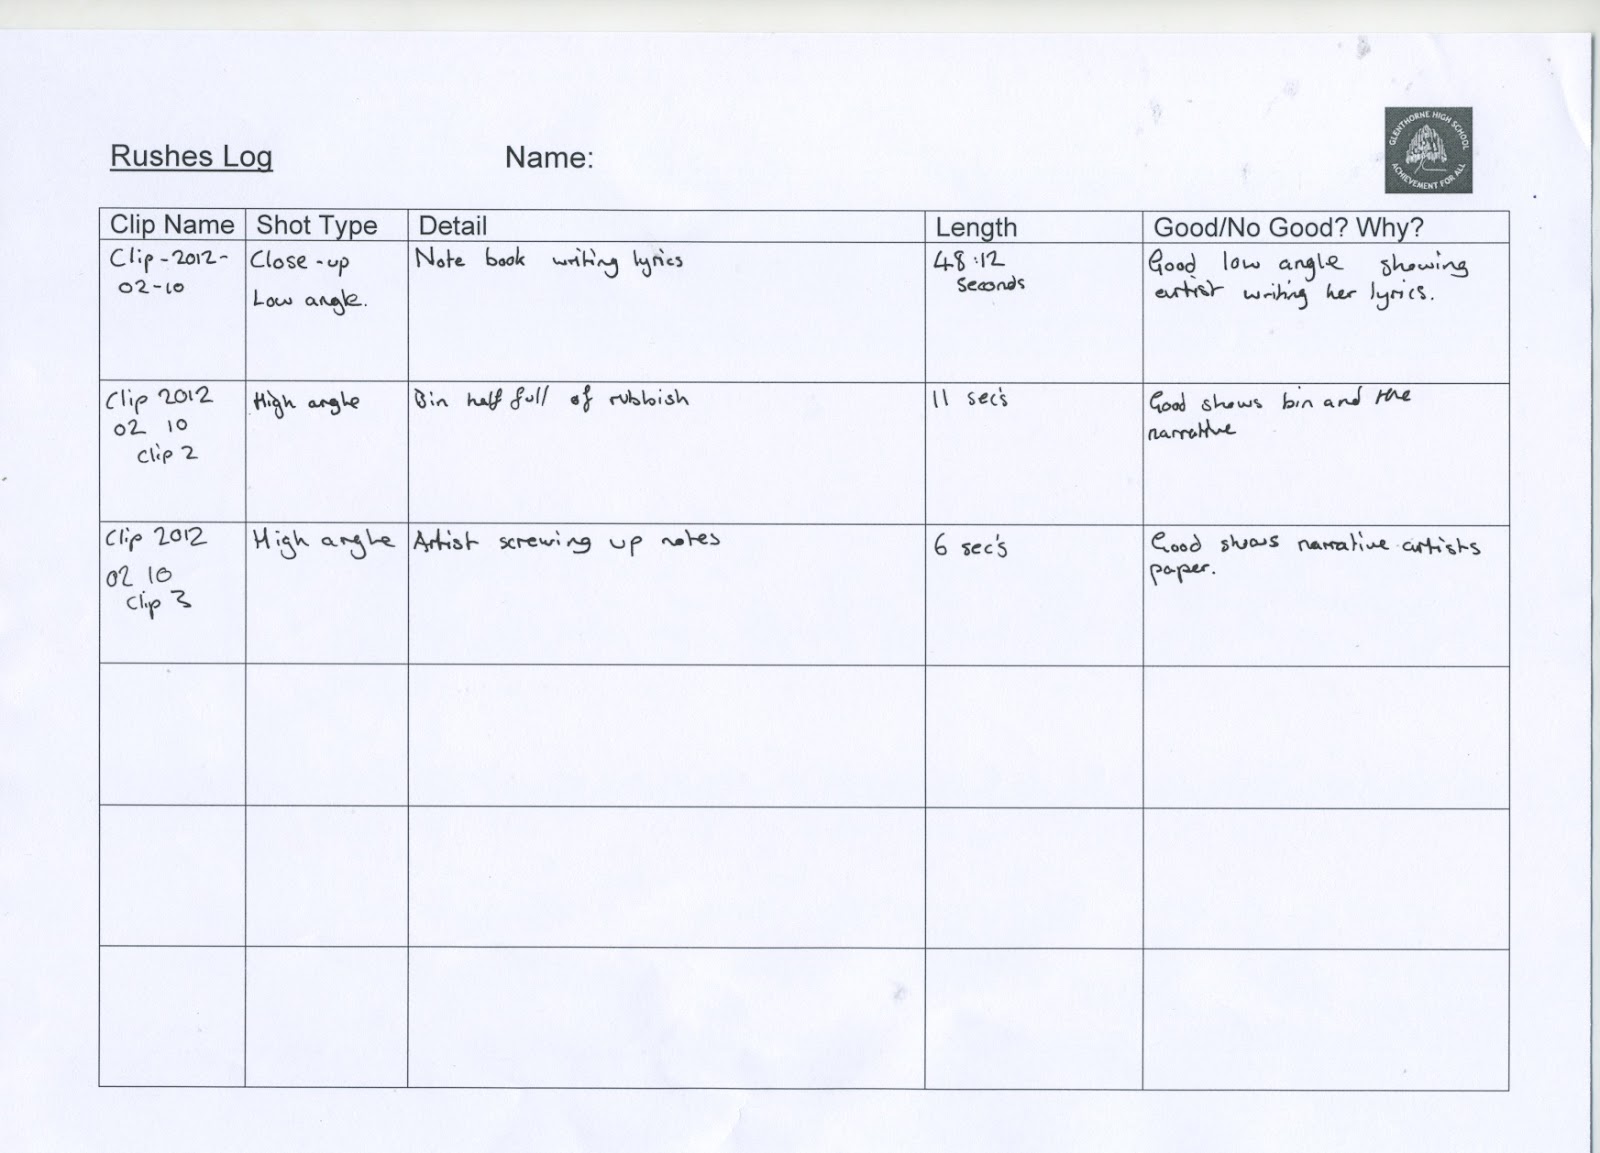 GLENTHORNE HIGH SCHOOL
ACHIEVEMENT FOR ALL
Rushes Log Name:
Clip Name Shot Type Detail Length Good/No Good? Why?
Clip-2012-
02-10
Close-up
Low angle.
Note book writing lyrics
48:12
seconds
Good low angle showing
artist writing her lyrics.
Clip 2012
02 10
Clip 2
High angle
Bin half full of rubbish
11 sec's
Good shows bin and the
narrative
Clip 2012
02 10
Clip 3
High angle
Artist screwing up notes
6 sec's
Good shows narrative artists
paper.